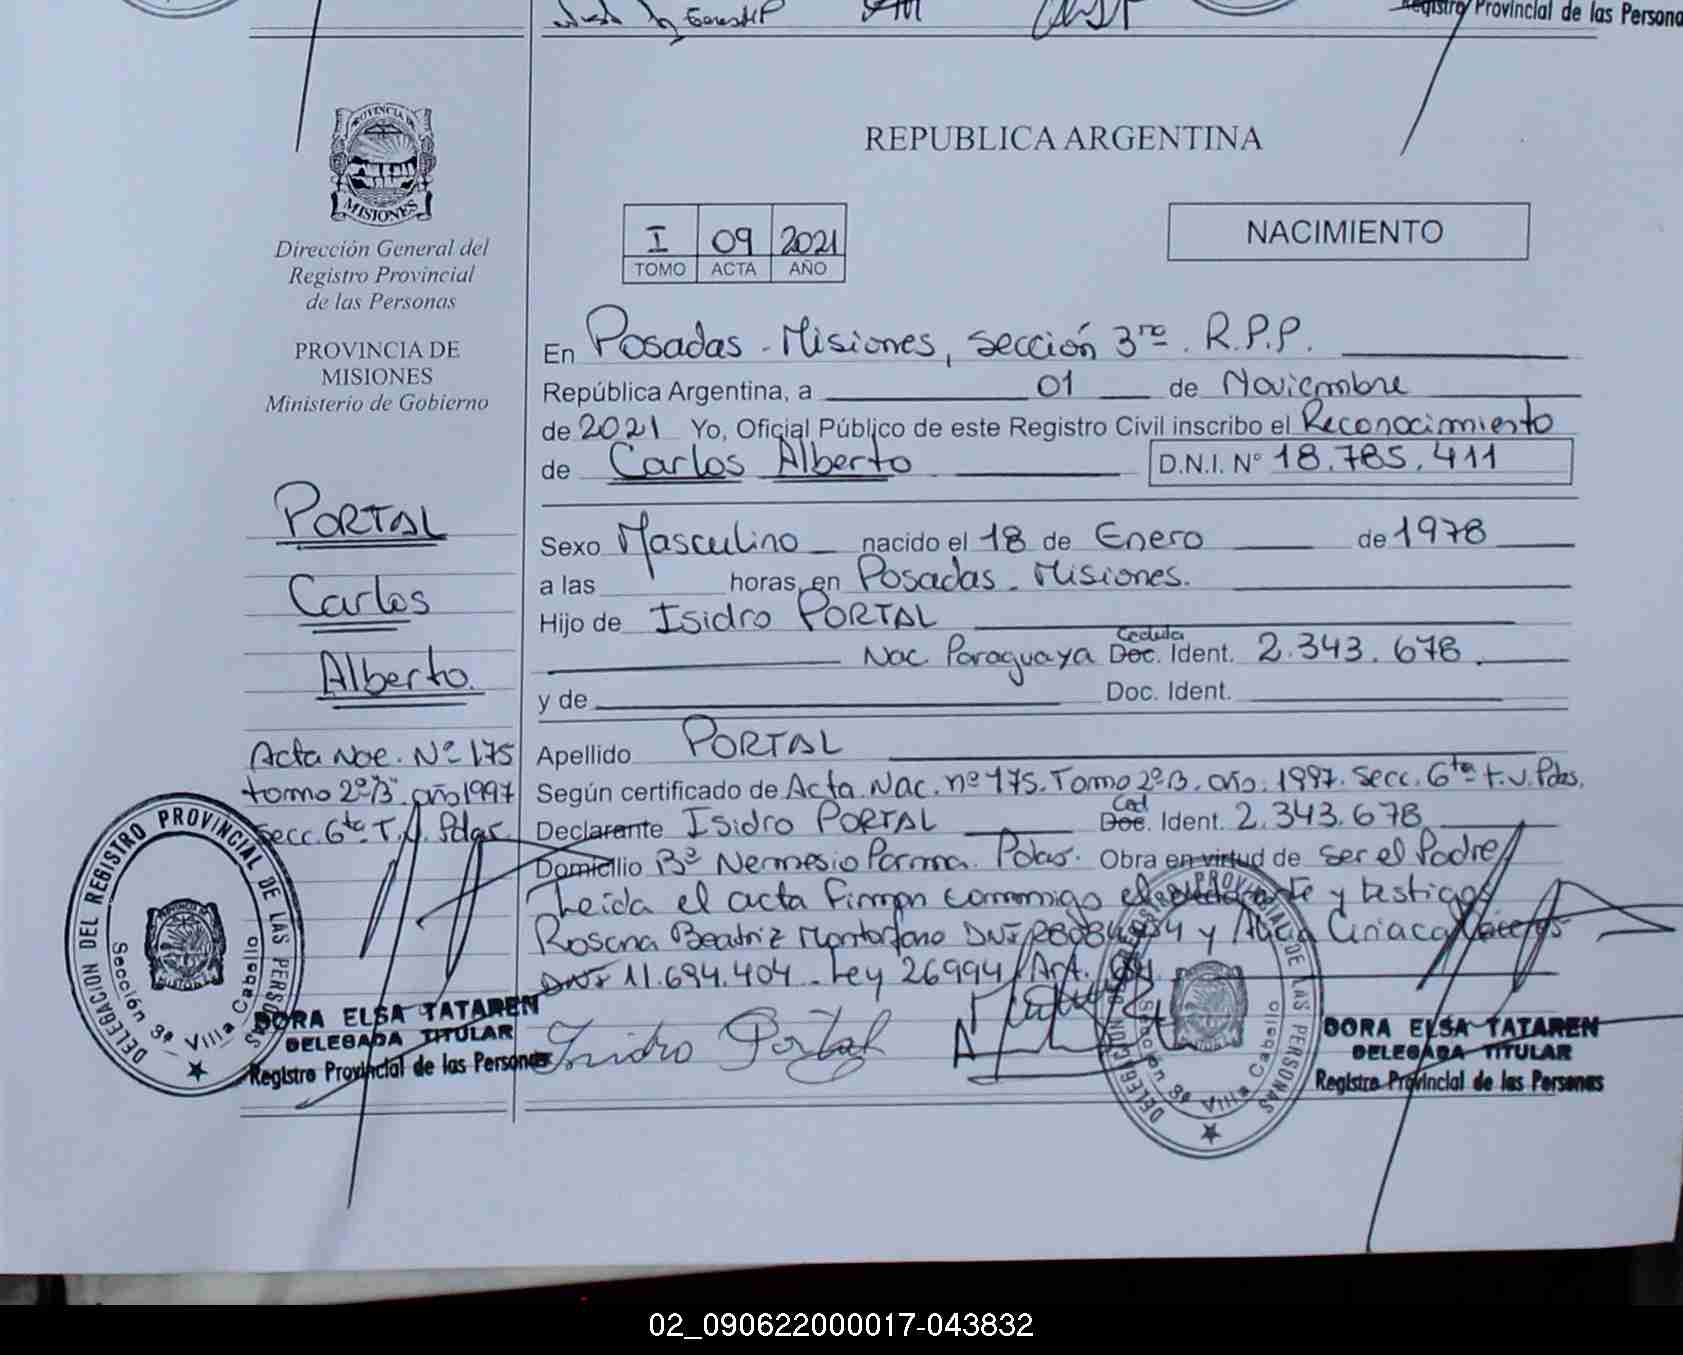 Registro Provincial de las Persona
PROVINCIA DE
MISIONES
Dirección General del
Registro Provincial
de las Personas
PROVINCIA DE
MISIONES
Ministerio de Gobierno
PORTAL
Carlos
Alberto.
Acta Nac. Nº 175
tomo 2º"B" año 1997
Secc. 6ta T.V. Pdas.
REPUBLICA ARGENTINA
I 09 2021
TOMO ACTA AÑO
NACIMIENTO
En Posadas - Misiones, sección 3ra. R.P.P.
República Argentina, a 01 de Noviembre
de 2021 Yo, Oficial Público de este Registro Civil inscribo el Reconocimiento
de Carlos Alberto D.N.I. Nº 18.785.411
Sexo Masculino nacido el 18 de Enero de 1978
a las horas, en Posadas - Misiones.
Hijo de Isidro PORTAL
Cedula
Nac. Paraguaya Doc. Ident. 2.343.678
y de Doc. Ident.
Apellido PORTAL
Según certificado de Acta Nac. nº 175. Tomo 2º B. año. 1997. Secc. 6ta T.V. Pdas.
Ced
Declarante Isidro PORTAL Doc. Ident. 2.343.678
Domicilio Bº Nemesio Parma. Pdas. Obra en virtud de ser el Padre
Leida el acta firman conmigo el y testigos
Rosana Beatriz Montorfano DNI y Alicia Ciriaca
DNI 11.694.404 - Ley 26994 Art.
Isidro Portal
DELEGACION DEL REGISTRO PROVINCIAL DE LAS PERSONAS
Sección 3ª Villa Cabello
DORA ELSA TATAREN
DELEGADA TITULAR
Registro Provincial de las Personas
DELEGACION DEL REGISTRO PROVINCIAL DE LAS PERSONAS
Sección 3ª Villa Cabello
DORA ELSA TATAREN
DELEGADA TITULAR
Registro Provincial de las Personas
02_090622000017-043832